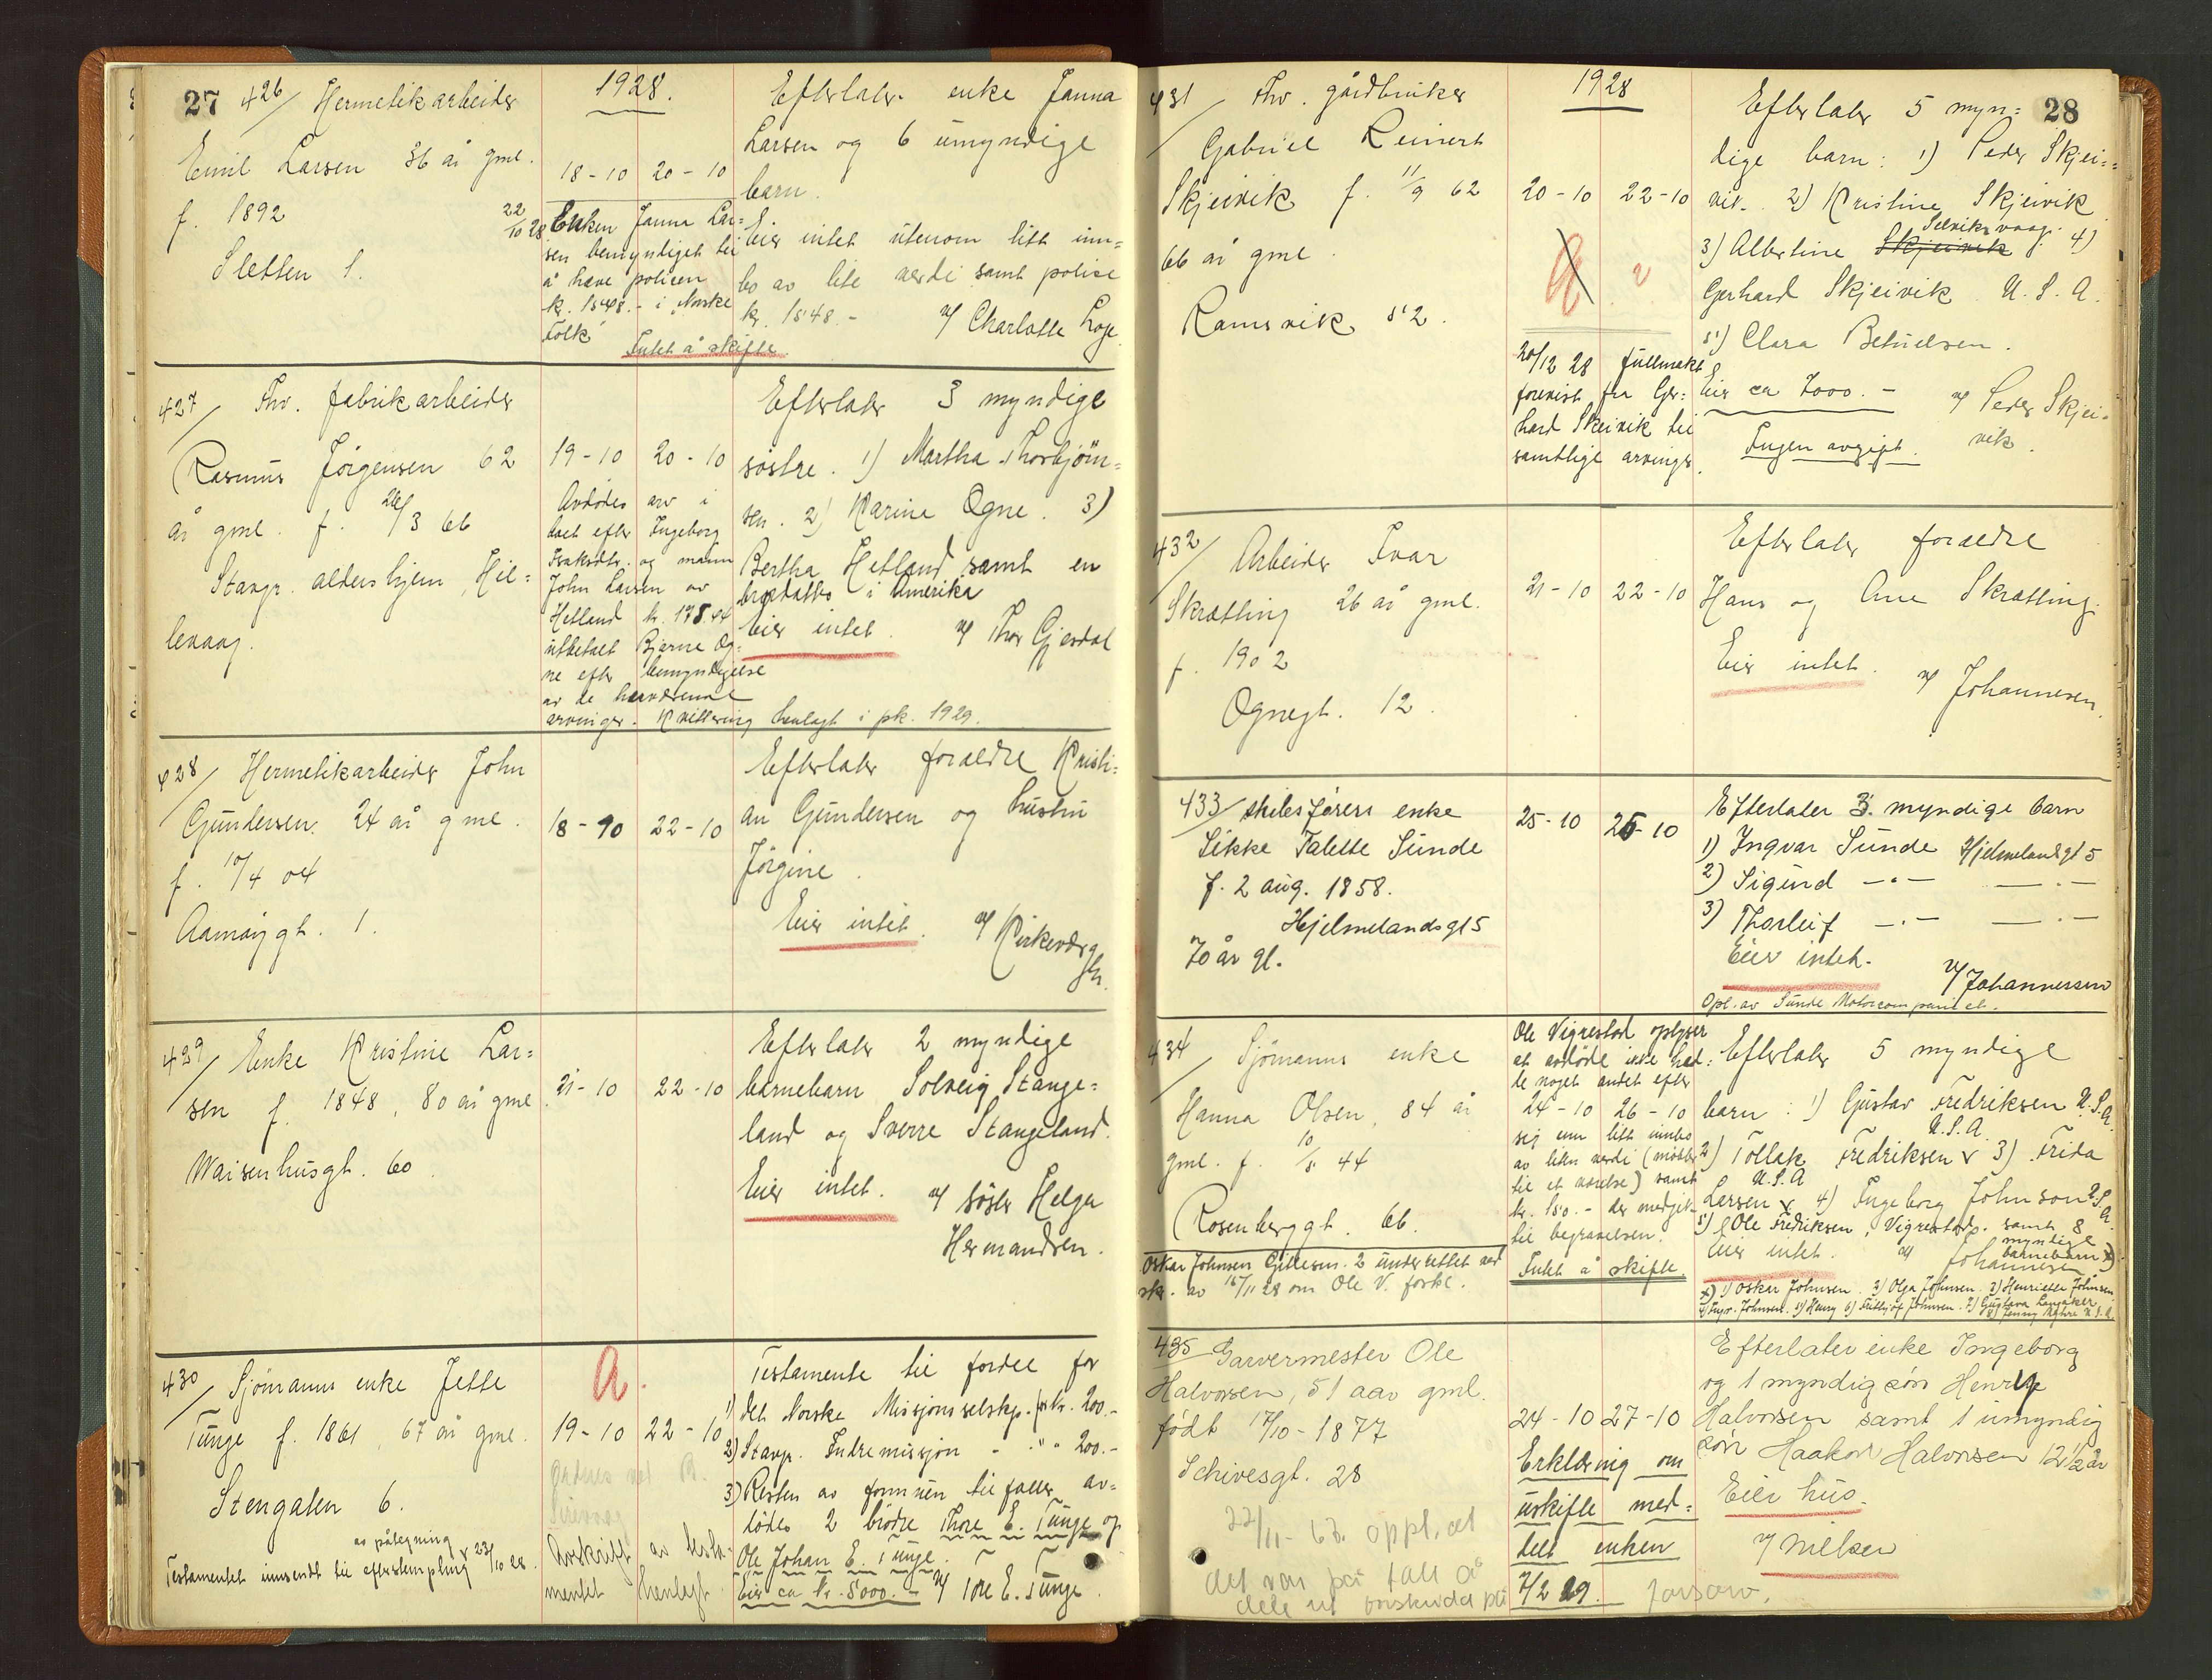 27
426/ Hermetikarbeider
Emil Larsen 36 år gml.
f. 1892
Sletten 1.
1928.
18-10 20-10
22/10 28 Enken Janna Lar=
sen bemyndiget til
å heve policen
kr. 1548.- i "Norske
Folk"
Intet å skifte.
Efterlater enke Janna
Larsen og 6 umyndige
barn.
Eier intet utenom litt inn=
bo av lite verdi samt polise
kr. 1548.-
v/ Charlotte
427/ Fhv. fabrikarbeider
Rasmus Jørgensen 62
år gml. f. 26/3 66
Stavgr. aldershjem, Hil=
levaag.
19-10 20-10
Avdødes arv i
boet efter Ingeborg
Isaksdtr. og mann
John Larsen av
Hetland kr. 178.44
utbetalt Bjarne Og=
ne efter bemyndigelse
av de herværende
arvinger. Kvittering henlagt i pk. 1929.
Efterlater 3 myndige
søstre. 1) Martha Thorbjørn=
sen. 2) Karine Ogne. 3)
Bertha Hetland samt en
i Amerika
Eier intet. v/ Thor Gjesdal
428/ Hermetikarbeider John
Gundersen. 24 år gml.
f. 10/4 04
Aamøygt. 1.
18-10 22-10
Efterlater foreldre Kristi=
an Gundersen og hustru
Jørgine.
Eier intet. v/ Kirkeverg
429/ Enke Kristine Lar=
sen f. 1848, 80 år gml.
Waisenhusgt. 60
21-10 22-10
Efterlater 2 myndige
barnebarn Solveig Stange=
land og Sverre Stangeland.
Eier intet. v/ søster Helga
Hermandsen.
430/ Sjømanns enke Jette
Tunge f. 1861, 67 år gml.
Stengaten 6.
av påtegning
Testamentet innsendt til efterstempling 23/10 28.
a.
19-10 22-10
Avskrift av testa-
mentet henlagt
Testamente til fordel for
1) det Norske Missjonsselskp. kr. 200.-
2) Stavgr. Indremissjon - " - 200.-
3) Resten av formuen tilfaller av=
dødes 2 brødre Thore E. Tunge og
Ole Johan E. Tunge.
Eier ca kr. 8000.- v/ Tore E. Tunge.
28
431/ Fhv. gårdbruker
Gabriel Reinert
Skjeivik f. 11/9 62
66 år gml.
Ramsvik 52.
1928
20-10 22-10
20/12 28 fullmakt
forevist fra Ger=
hard Skeivik til
samtlige arvinger.
Efterlater 5 myn=
dige barn: 1) Peder Skjei=
vik. 2) Kristine Skjeivik
Selviksvaag.
3) Albertine Skjeivik 4)
Gerhard Skjeivik U.S.A.
5) Clara Betuelsen.
Eier ca 7000.- v/ Peder Skjei-
vik.
Ingen avgift.
432/ Arbeider Ivar
Skrætting 26 år gml.
f. 1902
Ognegt. 12.
21-10 22-10
Efterlater foreldre
Hans og Ane Skrætting.
Eier intet.
v/ Johannesen.
433/ skibsførers enke
Sikke Talette Sunde
f. 2 aug. 1858.
Hjelmelandsgt 5
70 år gl.
25-10 25-10
Efterlater 3 myndige barn
1) Ingvar Sunde Hjelmelandsgt 5
2) Sigurd -"- -"-
3) Thorleif -"- -"-
Eier intet.
v/ Johannessen
Opl. av Sunde Motorcompaniet.
434/ Sjømanns enke
Hanna Olsen, 84 år
gml. f. 10/5 44
Rosenberggt. 66.
Oskar Johnsen Gittesens. 2 underrettet ved
skr. av 15/11 28 om Ole V. forkl.
Ole Vigrestad oplyser
at avdøde ikke had=
de noget andet efter
24-10 26-10
sig enn litt innbo
av liten verdi (møbler
til et værelse) samt
kr. 150.- der medgikk
til begravelsen.
Intet å skifte.
Efterlater 5 myndige
barn: 1) Gustav Fredriksen U.S.A.
U.S.A.
2) Tollak Fredriksen 3) Frida
U.S.A
Larsen 4) Ingeborg Johnson U.S.A.
5) Ole Fredriksen, Vigrestad. samt 8
myndige
barnebarn x)
Eier intet. v/ Johannesen
x) 1) Oskar Johnsen. 2) Olga Johnsen. 3) Henriette Johnsen
4) Ingv. Johnsen. 5) Henry 6) Fridtjof Johnsen. 7) Gustava Langaker
8) Jenny U.S.A.
435 Garvermester Ole
Halvorsen, 51 aar gml.
født 17/10-1877
Schivesgt. 28
22/11-63. oppl. at
det var på tale å
24-10 27-10
Erklæring om
uskifte med=
delt enken
7/2 29.
Efterlater enke Ingeborg
og 1 myndig søn Henry
Halvorsen samt 1 umyndig
søn Haakon Halvorsen 12 1/2 år
Eier hus.
v/ Nielsen